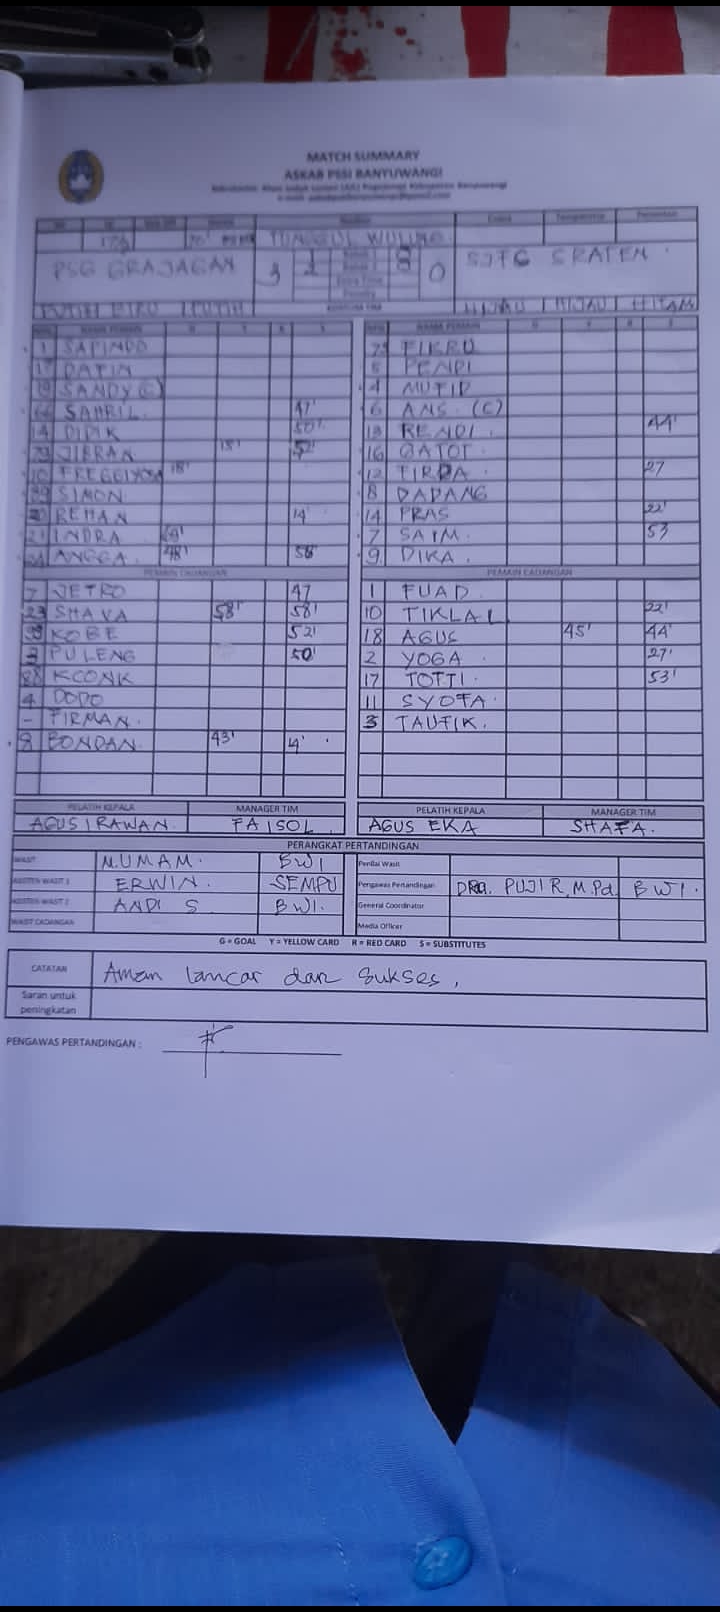 MATCH SUMMARY
ASKAB PSSI BANYUWANGI
TUNGGUL WULUNG
PSG GRAJAGAN 3 0 SJFC SRATEN
PUTIH BIRU PUTIH HIJAU HIJAU HITAM
NAMA PEMAIN NAMA PEMAIN
1 SAPINDO FIKRU
DAFIN 5 PENDI
SANDY (C) 4 MUTID
SAHRIL 47' 6 ANS. (C)
14 DIDIK 50' 13 RENDI 44'
JIBRAN 15' 52' 16 GATOT
10 18' 12 FIRDA 27
SIMON 8 DADANG
REHAN 14' 14 PRAS 22'
INDRA 7 SAIM. 53
ANGGA 48' 58' 9 DIKA.
PEMAIN CADANGAN PEMAIN CADANGAN
7 JETRO 47 1 FUAD
23 SHAVA 58' 58' 10 TIKLAL 22'
KOBE 52' 18 AGUS 45' 44'
PULENG 50' 2 YOGA 27'
88 KCONK 17 TOTTI 53'
4 DODO 11 SYOFA
- FIRMAN. 3 TAUFIK.
8 BONDAN 43' 14'
PELATIH KEPALA MANAGER TIM PELATIH KEPALA MANAGER TIM
AGUS IRAWAN FAISOL AGUS EKA SHAFA.
PERANGKAT PERTANDINGAN
WASIT M.UMAM. BWI Penilai Wasit
ASISTEN WASIT 1 ERWIN. SEMPU Pengawas Pertandingan PUJI R, M.Pd. BWI.
ASISTEN WASIT 2 ANDI S. BWI. General Coordinator
WASIT CADANGAN Media Officer
G = GOAL Y = YELLOW CARD R = RED CARD S = SUBSTITUTES
CATATAN Aman lancar dan sukses,
Saran untuk
peningkatan
PENGAWAS PERTANDINGAN :